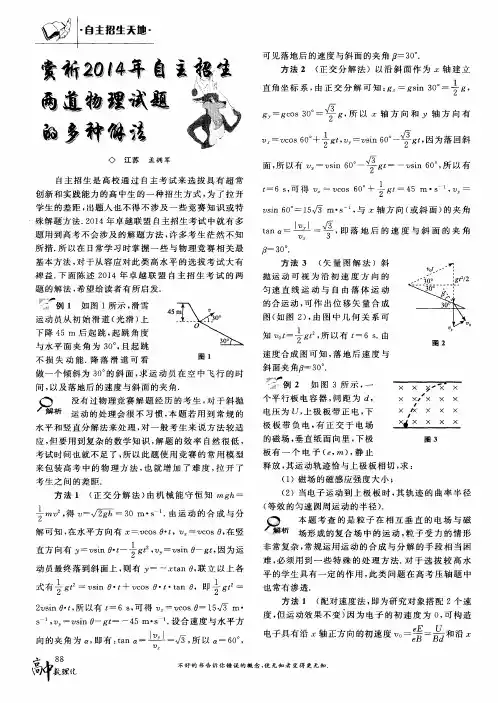 ·自主招生天地·
赏析2014年自主招生
两道物理试题
的多种解法
◇ 江苏 孟拥军
自主招生是高校通过自主考试来选拔具有超常
创新和实践能力的高中生的一种招生方式,为了拉开
学生的差距,出题人也不得不涉及一些竞赛知识或特
殊解题方法.2014年卓越联盟自主招生考试中就有多
题用到高考不会涉及的解题方法,许多考生茫然不知
所措.所以在日常学习时掌握一些与物理竞赛相关最
基本方法,对于从容应对此类高水平的选拔考试大有
裨益.下面陈述2014年卓越联盟自主招生考试的两
题的解法,希望给读者有所启发.
例1 如图1所示,滑雪
运动员从初始滑道(光滑)上
下降45 m后起跳,起跳角度
与水平面夹角为30°,且起跳
不损失动能.降落滑道可看
做一个倾斜为30°的斜面,求运动员在空中飞行的时
间,以及落地后的速度与斜面的夹角.
45 m
O
30°
30°
图1
解析 没有过物理竞赛解题经历的考生,对于斜抛
运动的处理会很不习惯,本题若用到常规的
水平和竖直分解法来处理,对一般考生来说方法较适
应,但要用到复杂的数学知识,解题的效率自然很低,
考试时间也就不足了,所以此题使用竞赛的常用模型
来包装高考中的物理方法,也就增加了难度,拉开了
考生之间的差距.
方法1 (正交分解法)由机械能守恒知 mgh=
1/2 mv²,得 v=√2gh=30 m·s⁻¹.由运动的合成与分
解可知,在水平方向有 x=vcos θ·t, vₓ=vcos θ,在竖
直方向有 y=vsin θ·t-1/2 gt²,v_y=vsin θ-gt,因为运
动员最终落到斜面上,则有 y=-xtan θ,联立以上各
式有 1/2 gt²=vsin θ·t+vcos θ·t·tan θ, 即 1/2 gt²=
2vsin θ·t,所以有 t=6 s,可得 vₓ=vcos θ=15√3 m·
s⁻¹,v_y=vsin θ-gt=-45 m·s⁻¹.设合速度与水平方
向的夹角为 α,即有:tan α=|v_y|/vₓ=√3,所以 α=60°,
可见落地后的速度与斜面的夹角 β=30°.
方法2 (正交分解法)以沿斜面作为 x 轴建立
直角坐标系,由正交分解可知:gₓ=gsin 30°=1/2 g,
g_y=gcos 30°=√3/2 g,所以 x 轴方向和 y 轴方向有
vₓ=vcos 60°+1/2 gt,v_y=vsin 60°-√3/2 gt,因为落回斜
面,所以有 v_y=vsin 60°-√3/2 gt=-vsin 60°,所以有
t=6 s,可得 vₓ=vcos 60°+1/2 gt=45 m·s⁻¹,v_y=
vsin 60°=15√3 m·s⁻¹,与 x 轴方向(或斜面)的夹角
tan α=|v_y|/vₓ=√3/3,即落地后的速度与斜面的夹角
β=30°.
方法3 (矢量图解法)斜
抛运动可视为沿初速度方向的
匀速直线运动与自由落体运动
的合运动,可作出位移矢量合成
图(如图2),由图中几何关系可
知 v₀t=1/2 gt²,所以有 t=6 s.由
速度合成图可知,落地后速度与
斜面夹角β=30°.
v₀t
30°
30°
gt²/2
30°
图2
例2 如图3所示,一
个平行板电容器,间距为 d,
电压为 U,上极板带正电,下
极板带负电,有正交于电场
的磁场,垂直纸面向里,下极
板有一个电子(e,m),静止
释放,其运动轨迹恰与上极板相切,求:
图3
(1)磁场的磁感应强度大小;
(2)当电子运动到上极板时,其轨迹的曲率半径
(等效的匀速圆周运动的半径).
解析 本题考查的是粒子在相互垂直的电场与磁
场形成的复合场中的运动,粒子受力的情形
非常复杂,常规运用运动的合成与分解的手段相当困
难,必须用到一些特殊的处理方法.对于选拔较高水
平的学生具有一定的作用,此类问题在高考压轴题中
也常有渗透.
方法1 (配对速度法,即为研究对象搭配2个速
度,但运动效果不变)因为电子的初速度为0,可构造
电子具有沿 x 轴正方向的初速度 v₀=eE/eB=U/Bd和沿 x
88
高中数理化
不好的书告诉你错误的概念,使无知者变得更无知.